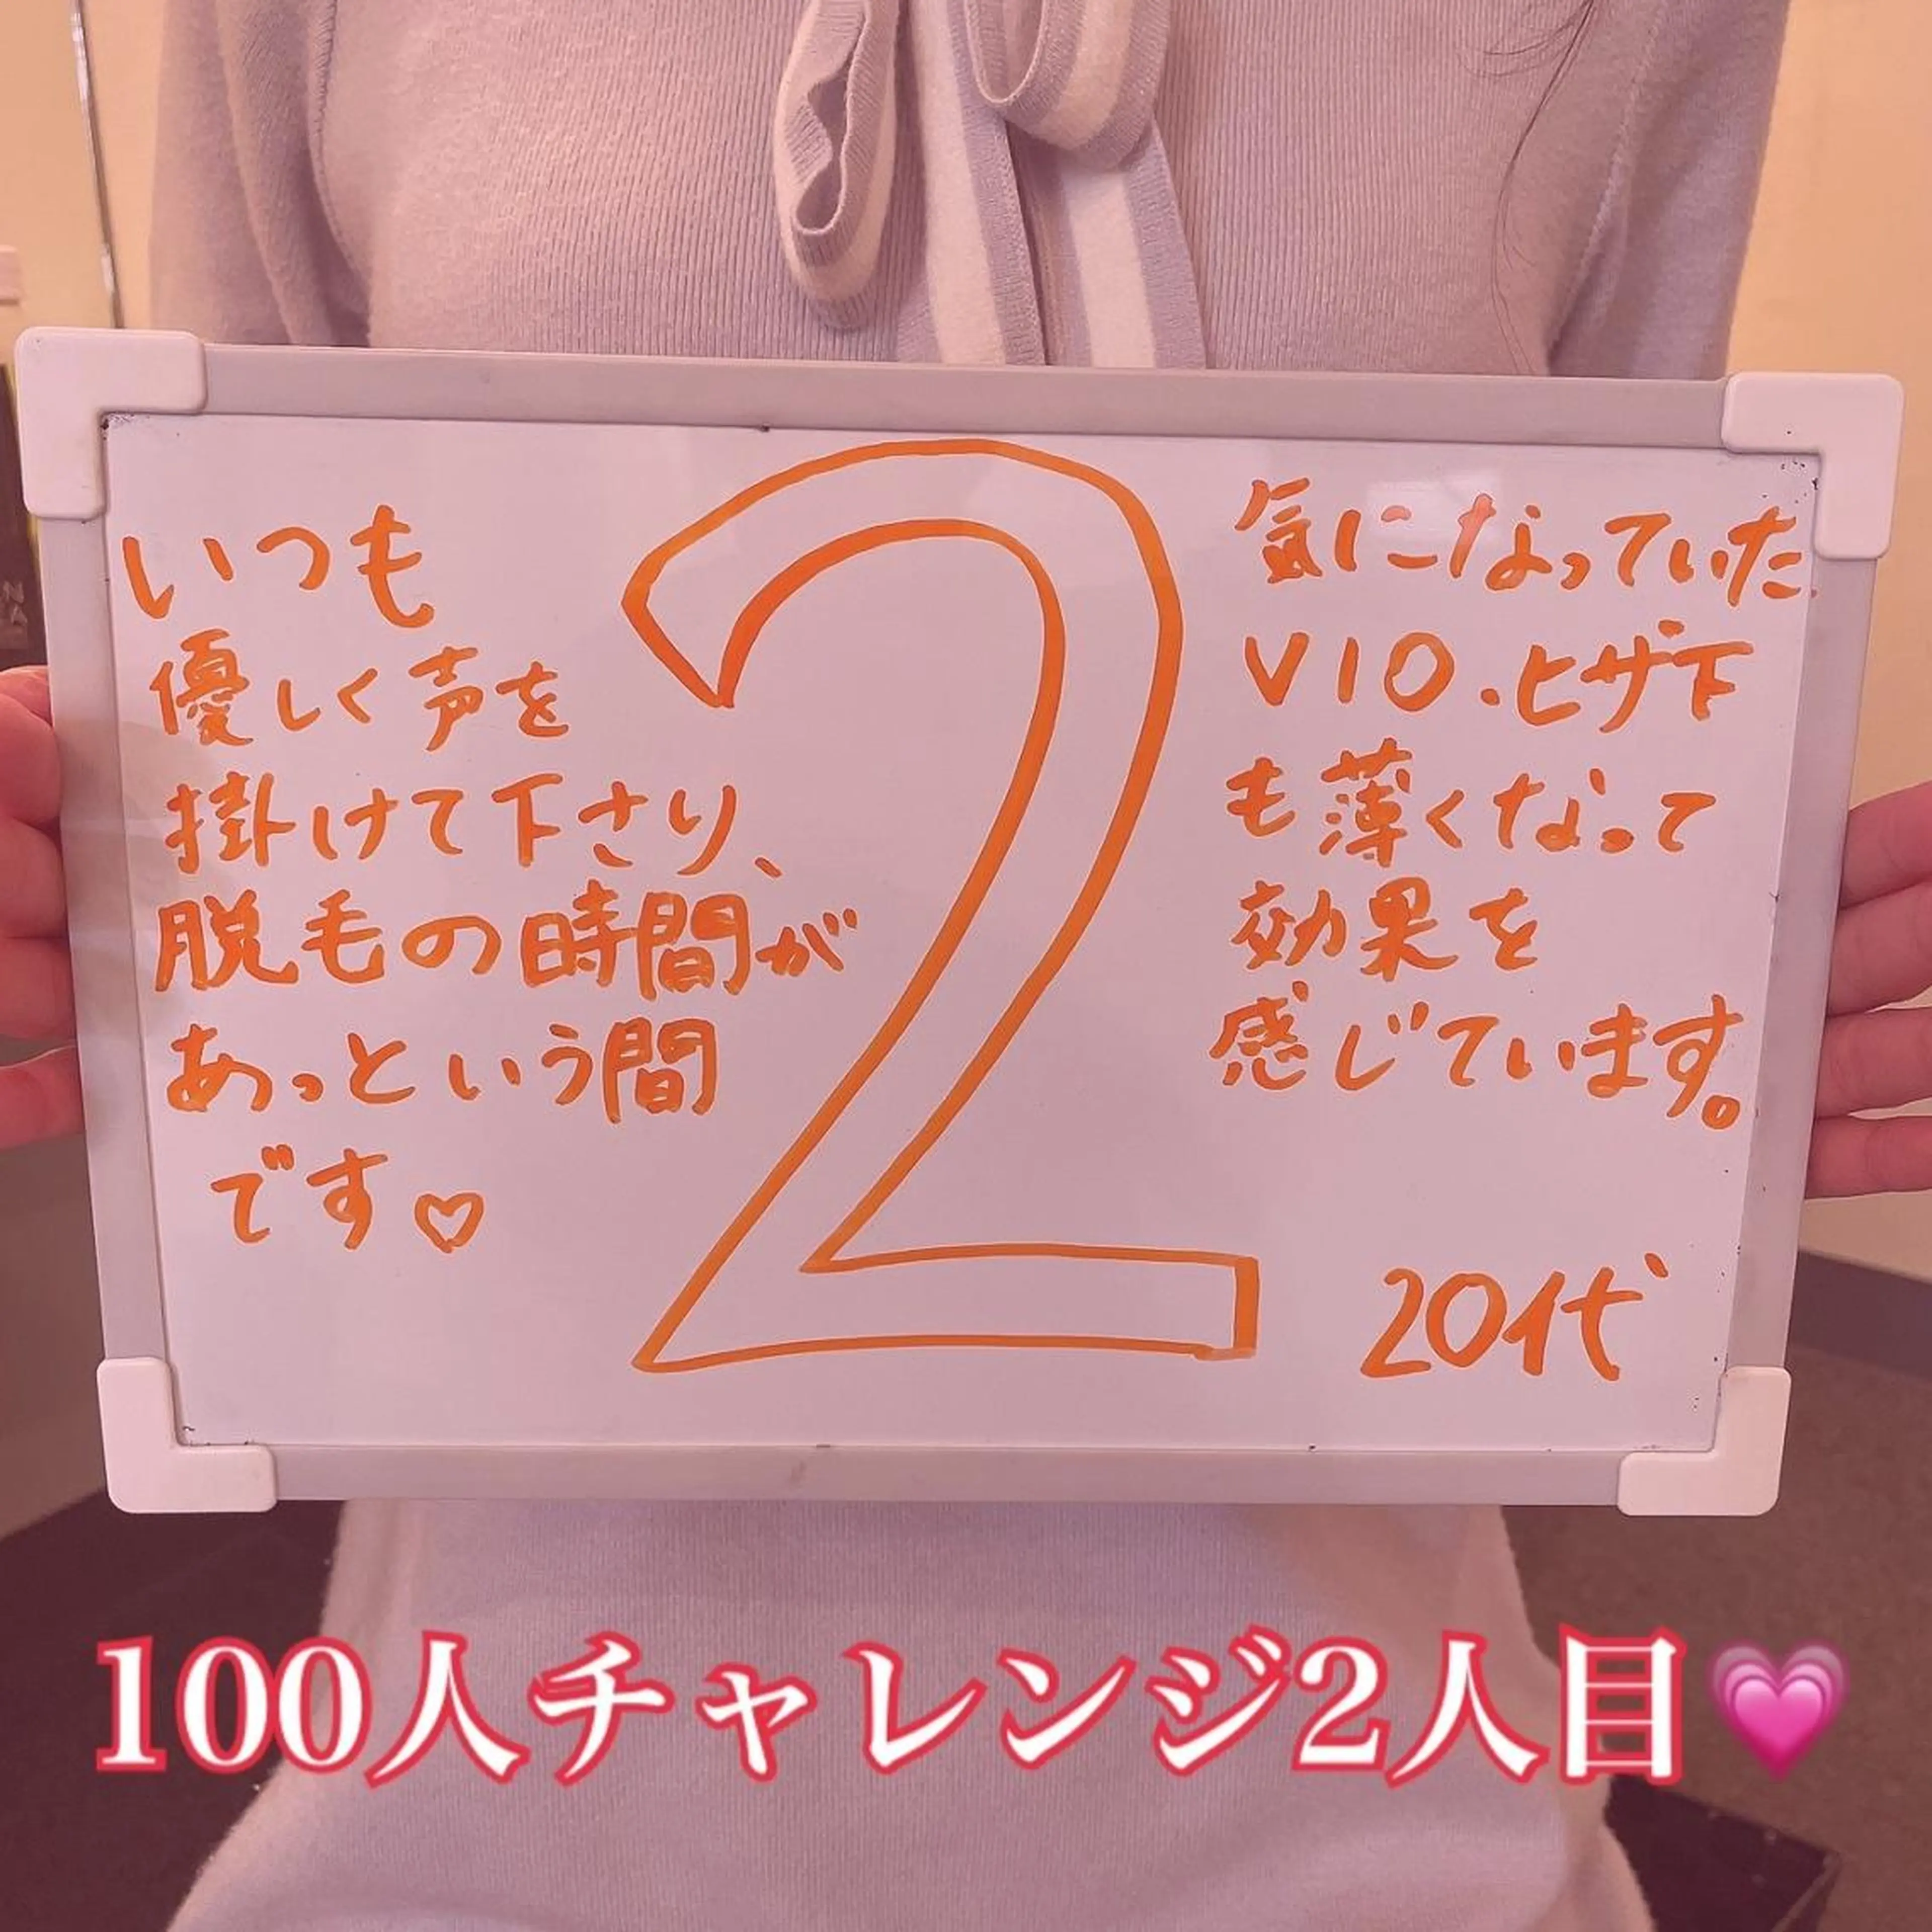 いつも
優しく声を
掛けて下さり、
脱毛の時間が
あっという間
です♡
2
気になっていた
VIO・ヒザ下
も薄くなって
効果を
感じています。
20代
100人チャレンジ2人目💗